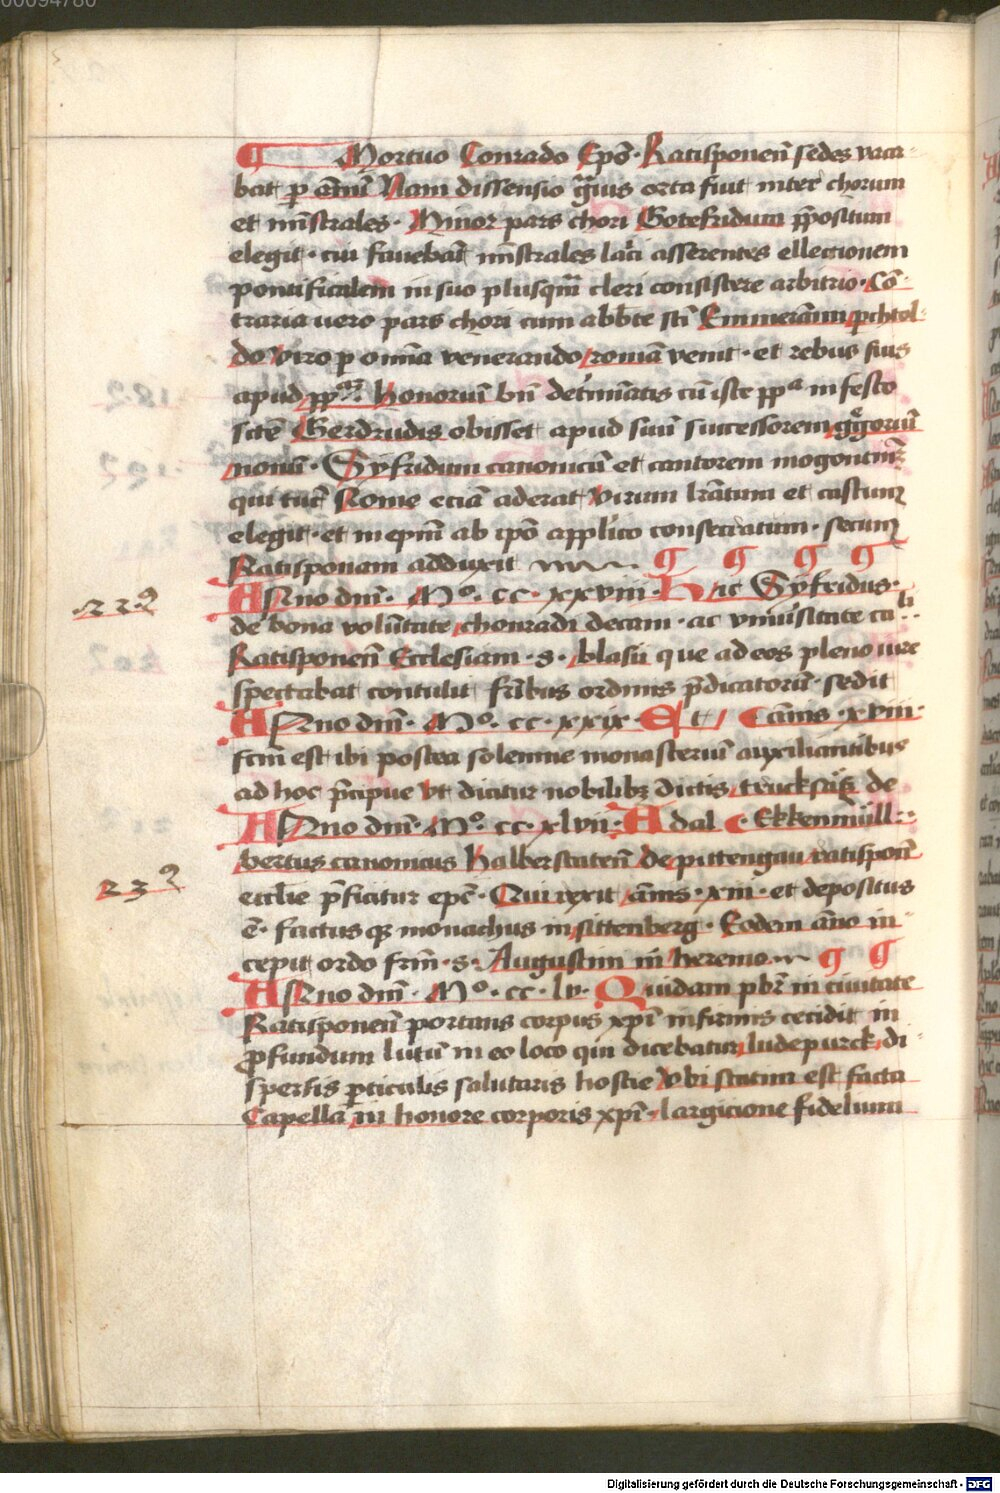 00094780
¶ Mortuo Conrado Epō · Ratisponen̄ sedes vaca-
bat ꝑ annū Nam dissensio gͣuis orta fiut inter chorum
et mīstrales · Minor pars chori Gotefridum p̄positum
elegit · cui fauebāt mīstrales laici asserentes ellectionem
pontificalem in suo plusqͣm cleri consistere arbitrio · Cō
traria uero pars chori cum abbte sc̄i Emmerāmi pchtol-
do viro ꝑ omīa venerando romā venit · et rebus suis
apud Honoriū bn̄ detīnatis cū iste pp̄ᵃ in festo
sc̄te Gerdrudis obisset apud suū successorem gͤgoriū
nonū · Syfridum canonicū et cantorem mogontinū
qui tūc Rome eciā aderat virum lr̄atum et castum
elegit · et in ep̄m ab ip̄o applico consecratum · secum
Ratisponam adduxit ¶ ¶ ¶ ¶
Anno dn̄i · Mº · cc · xxviii · Hic Syfridus ·
22⁹
de bona volūtate chonradi decani · ac vniuersitate ca li ·
Ratisponen̄ Ecclesiam · s · blasii que ad eos pleno iure
spectabat contulit fr̄ibus ordinis p̄dicatorū · sedit
Anno dn̄i · Mº · cc · xxix · Et Annis · xviii ·
fc̄m est ibi postea solemne monasteriū auxiliantibus
ad hoc p̄cipue vt dicitur nobilibꝫ dictis truckseß de
Anno dn̄i · Mº · cc · xlvii · Adal Ekkenmüll
bertus canonicus halberstaten̄ de pittengau ratispon̄
23⁹
ecclīe p̄ficitur epc̄ · Qui rexit annis · xiii · et depositus
ē · factus qꝫ monachus in sittenberg · Eodem āno in
cepit ordo frm̄ · s · Augustini in heremo ¶ ¶
Anno dn̄i · Mº · cc · lv · Quidam pbr̄ in ciuitate
Ratisponen̄ portans corpus xp̄i infirmis cecidit in
ꝓfundum lutū in eo loco qui dicebatur ludepurck di
spersis ꝑticulis salutaris hostie vbi statim est facta
Capella in honore corporis xp̄i · largicione fidelium
Digitalisierung gefördert durch die Deutsche Forschungsgemeinschaft - DFG